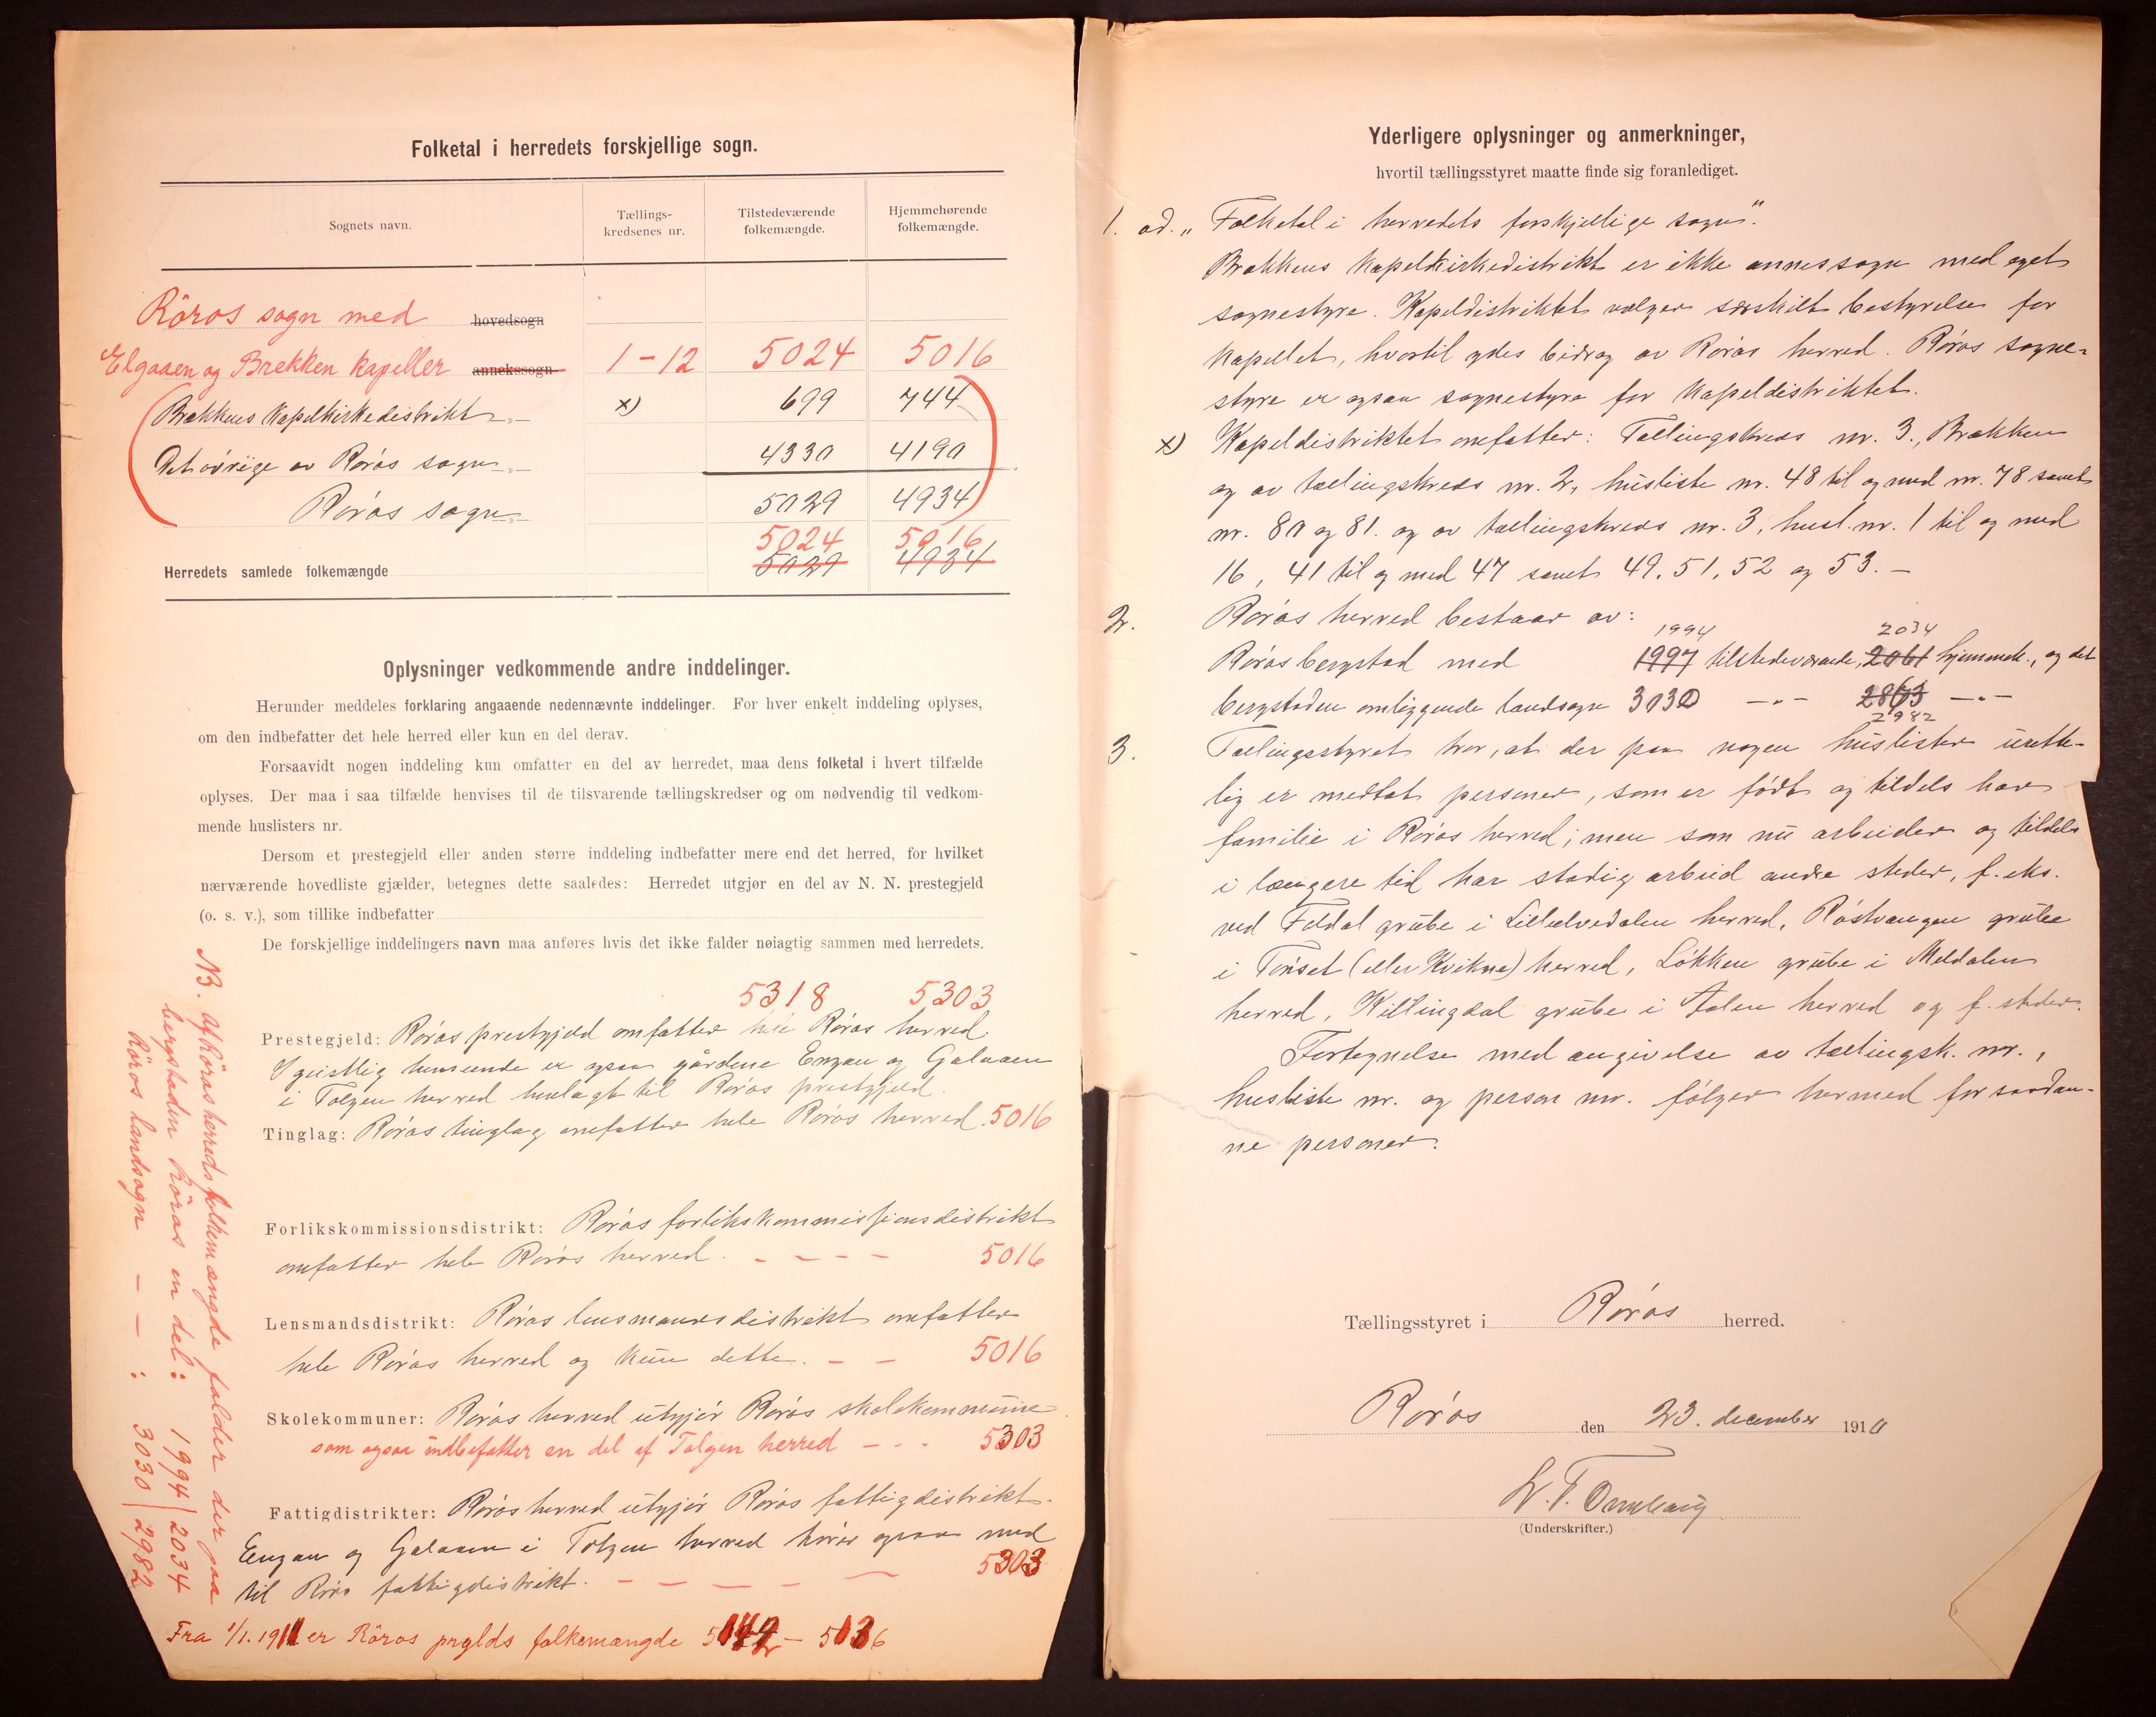 Folketal i herredets forskjellige sogn.
Sognets navn.
Tællings-
kredsenes nr.
Tilstedeværende
folkemængde.
Hjemmehørende
folkemængde.
Röros sogn med hovedsogn
Elgaaen og Brekken kapeller annekssogn 1-12 5024 5016
Brækkens kapelkirkedistrikt x) 699 744
Det øvrige av Røros sogn 4330 4190
Røros sogn 5029 4934
5024 5016
Herredets samlede folkemængde 5029 4934
Oplysninger vedkommende andre inddelinger.
Herunder meddeles forklaring angaaende nedennævnte inddelinger. For hver enkelt inddeling oplyses,
om den indbefatter det hele herred eller kun en del derav.
Forsaavidt nogen inddeling kun omfatter en del av herredet, maa dens folketal i hvert tilfælde
oplyses. Der maa i saa tilfælde henvises til de tilsvarende tællingskredser og om nødvendig til vedkom-
mende huslisters nr.
Dersom et prestegjeld eller anden større inddeling indbefatter mere end det herred, for hvilket
nærværende hovedliste gjælder, betegnes dette saaledes: Herredet utgjør en del av N. N. prestegjeld
(o. s. v.), som tillike indbefatter
De forskjellige inddelingers navn maa anføres hvis det ikke falder nøiagtig sammen med herredets.
5318 5303
Prestegjeld: Røros prestegjeld omfatter hele Røros herred.
I geistlig henseende er ogsaa gårdene Enzan og Galaaen
i Tolgen herred henlagt til Røros prestegjeld.
Tinglag: Røros tinglag omfatter hele Røros herred. 5016
Forlikskommissionsdistrikt: Røros forlikskommissionsdistrikt
omfatter hele Røros herred. - - - - 5016
Lensmandsdistrikt: Røros lensmannsdistrikt omfatter
hele Røros herred og kun dette. - - 5016
Skolekommuner: Røros herred utgjør Røros skolekommune
som ogsaa indbefatter en del af Tolgen herred - - - 5303
Fattigdistrikter: Røros herred utgjør Røros fattigdistrikt.
Enzan og Galaaen i Tolgen herred hører ogsaa med
til Røros fattigdistrikt. - - - - - 5303
Fra 1/1. 1911 er Röros prgjlds folkemængde
NB. Af Röros herreds folkemængde falder der paa
bergstaden Röros en del: 1994 | 2034
Röros landsogn - - : 3030 | 2982
Yderligere oplysninger og anmerkninger,
hvortil tællingsstyret maatte finde sig foranlediget.
1. ad. „Folketal i herredets forskjellige sogn".
Brækkens kapelkirkedistrikt er ikke annessogn med eget
sognestyre. Kapeldistriktet vælger særskilt bestyrelse for
kapellet, hvortil ydes bidrag av Røros herred. Røros sogne-
styre er ogsaa sognestyre for kapeldistriktet.
x) Kapeldistriktet omfatter: Tællingskreds nr. 3., Brækken
og av tællingskreds nr. 2, husliste nr. 48 til og med nr. 78 samt
nr. 80 og 81. og av tællingskreds nr. 3, husl. nr. 1 til og med
16, 41 til og med 47 samt 49, 51, 52 og 53. -
2. Røros herred bestaar av:
1994 2034
Røros bergstad med 1997 tilstedeværende, 2061 hjemmeh., og det
bergstaden omliggende landsogn 3030 -"- 2863 -"-
2982
3. Tællingsstyret tror, at der paa nogen huslister urette-
lig er medtat personer, som er født og tildels har
familie i Røros herred; men som nu arbeider og tildels
i længere tid har stadig arbeid andre steder, f. eks.
ved Foldal grube i Lilleelvedalen herred, Røstvangen grube
i Tønset (eller Kvikne) herred, Løkken grube i Meldalen
herred, Killingdal grube i Aalen herred og f. steder.
Fortegnelse med angivelse av tællingsk. nr.,
husliste nr. og person nr. følger hermed for saadan-
ne personer.
Tællingsstyret i Røros herred.
Røros den 23. december 1910
(Underskrifter.)